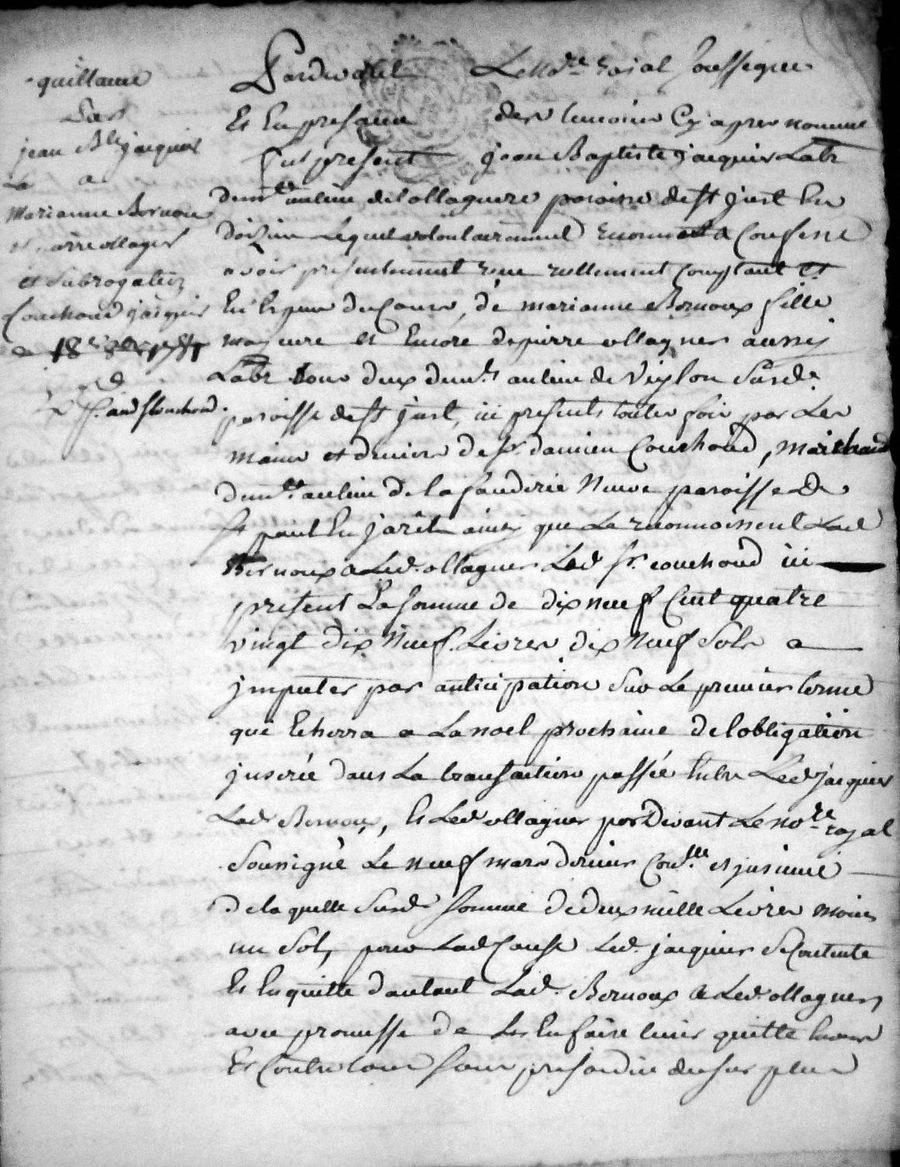 quittance
Par
jean Bte jacquier
La a
marianne Bernou
et pierre ollagier
et subrogation
Couchoud jacquier
Pardevant Le nore roial soussigné
Et En presance des temoins Cy apres nommé
fut present jean Baptiste jacquier Labr
demt au lieu de lollagnere paroisse de st just En
doizieu Lequel volontairement reconnoit & Confesse
avoir presentement reçu réellement Comptant et
En Espece de Cours, de marianne Bernoux fille
majeure et Encore de pierre ollagner aussy
Labr tous deux demts au lieu de Veylon susde
paroisse de st just, ici presents toutes fois par Les
mains et deniers de sr damien Couchoud, marchand
demt au lieu de la fanderie Neuve paroisse de
st paul En jarêt ainsy que Le reconnoissent Lad
Bernoux & Led. ollagner Led sr. couchoud ici
present La somme de dix neuf Cent quatre
vingt dix Neuf Livres dix Neuf Sols a
jmputer par anticipation sur Le premier terme
que Echerra a La noel prochaine de lobligation
jnserée dans La transaction passée Entre Led jacquier
Lad Bernoux, Et Led ollagner pardevant Le nore royal
Soussigné Le neuf mars dernier Conllé et jnsinué
de la quelle susde somme de deux mille Livres moins
un Sol, pour Lad Cause Led. jacquier se Contente
Et En quitte d'autant Lad. Bernoux & Led ollagner
avec promesse de Les En faire tenir quitte Envers
Et Contre tous sans prejudice du sur plus